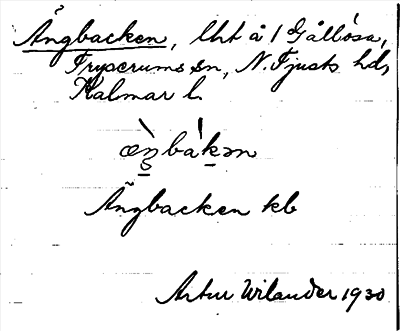 Ängbacken, lht å 1 Gållösa,
Tryserums sn, N. Tjusts hd,
Kalmar l.
æŋbakən
Ängbacken kb
Artur Wilander 1930